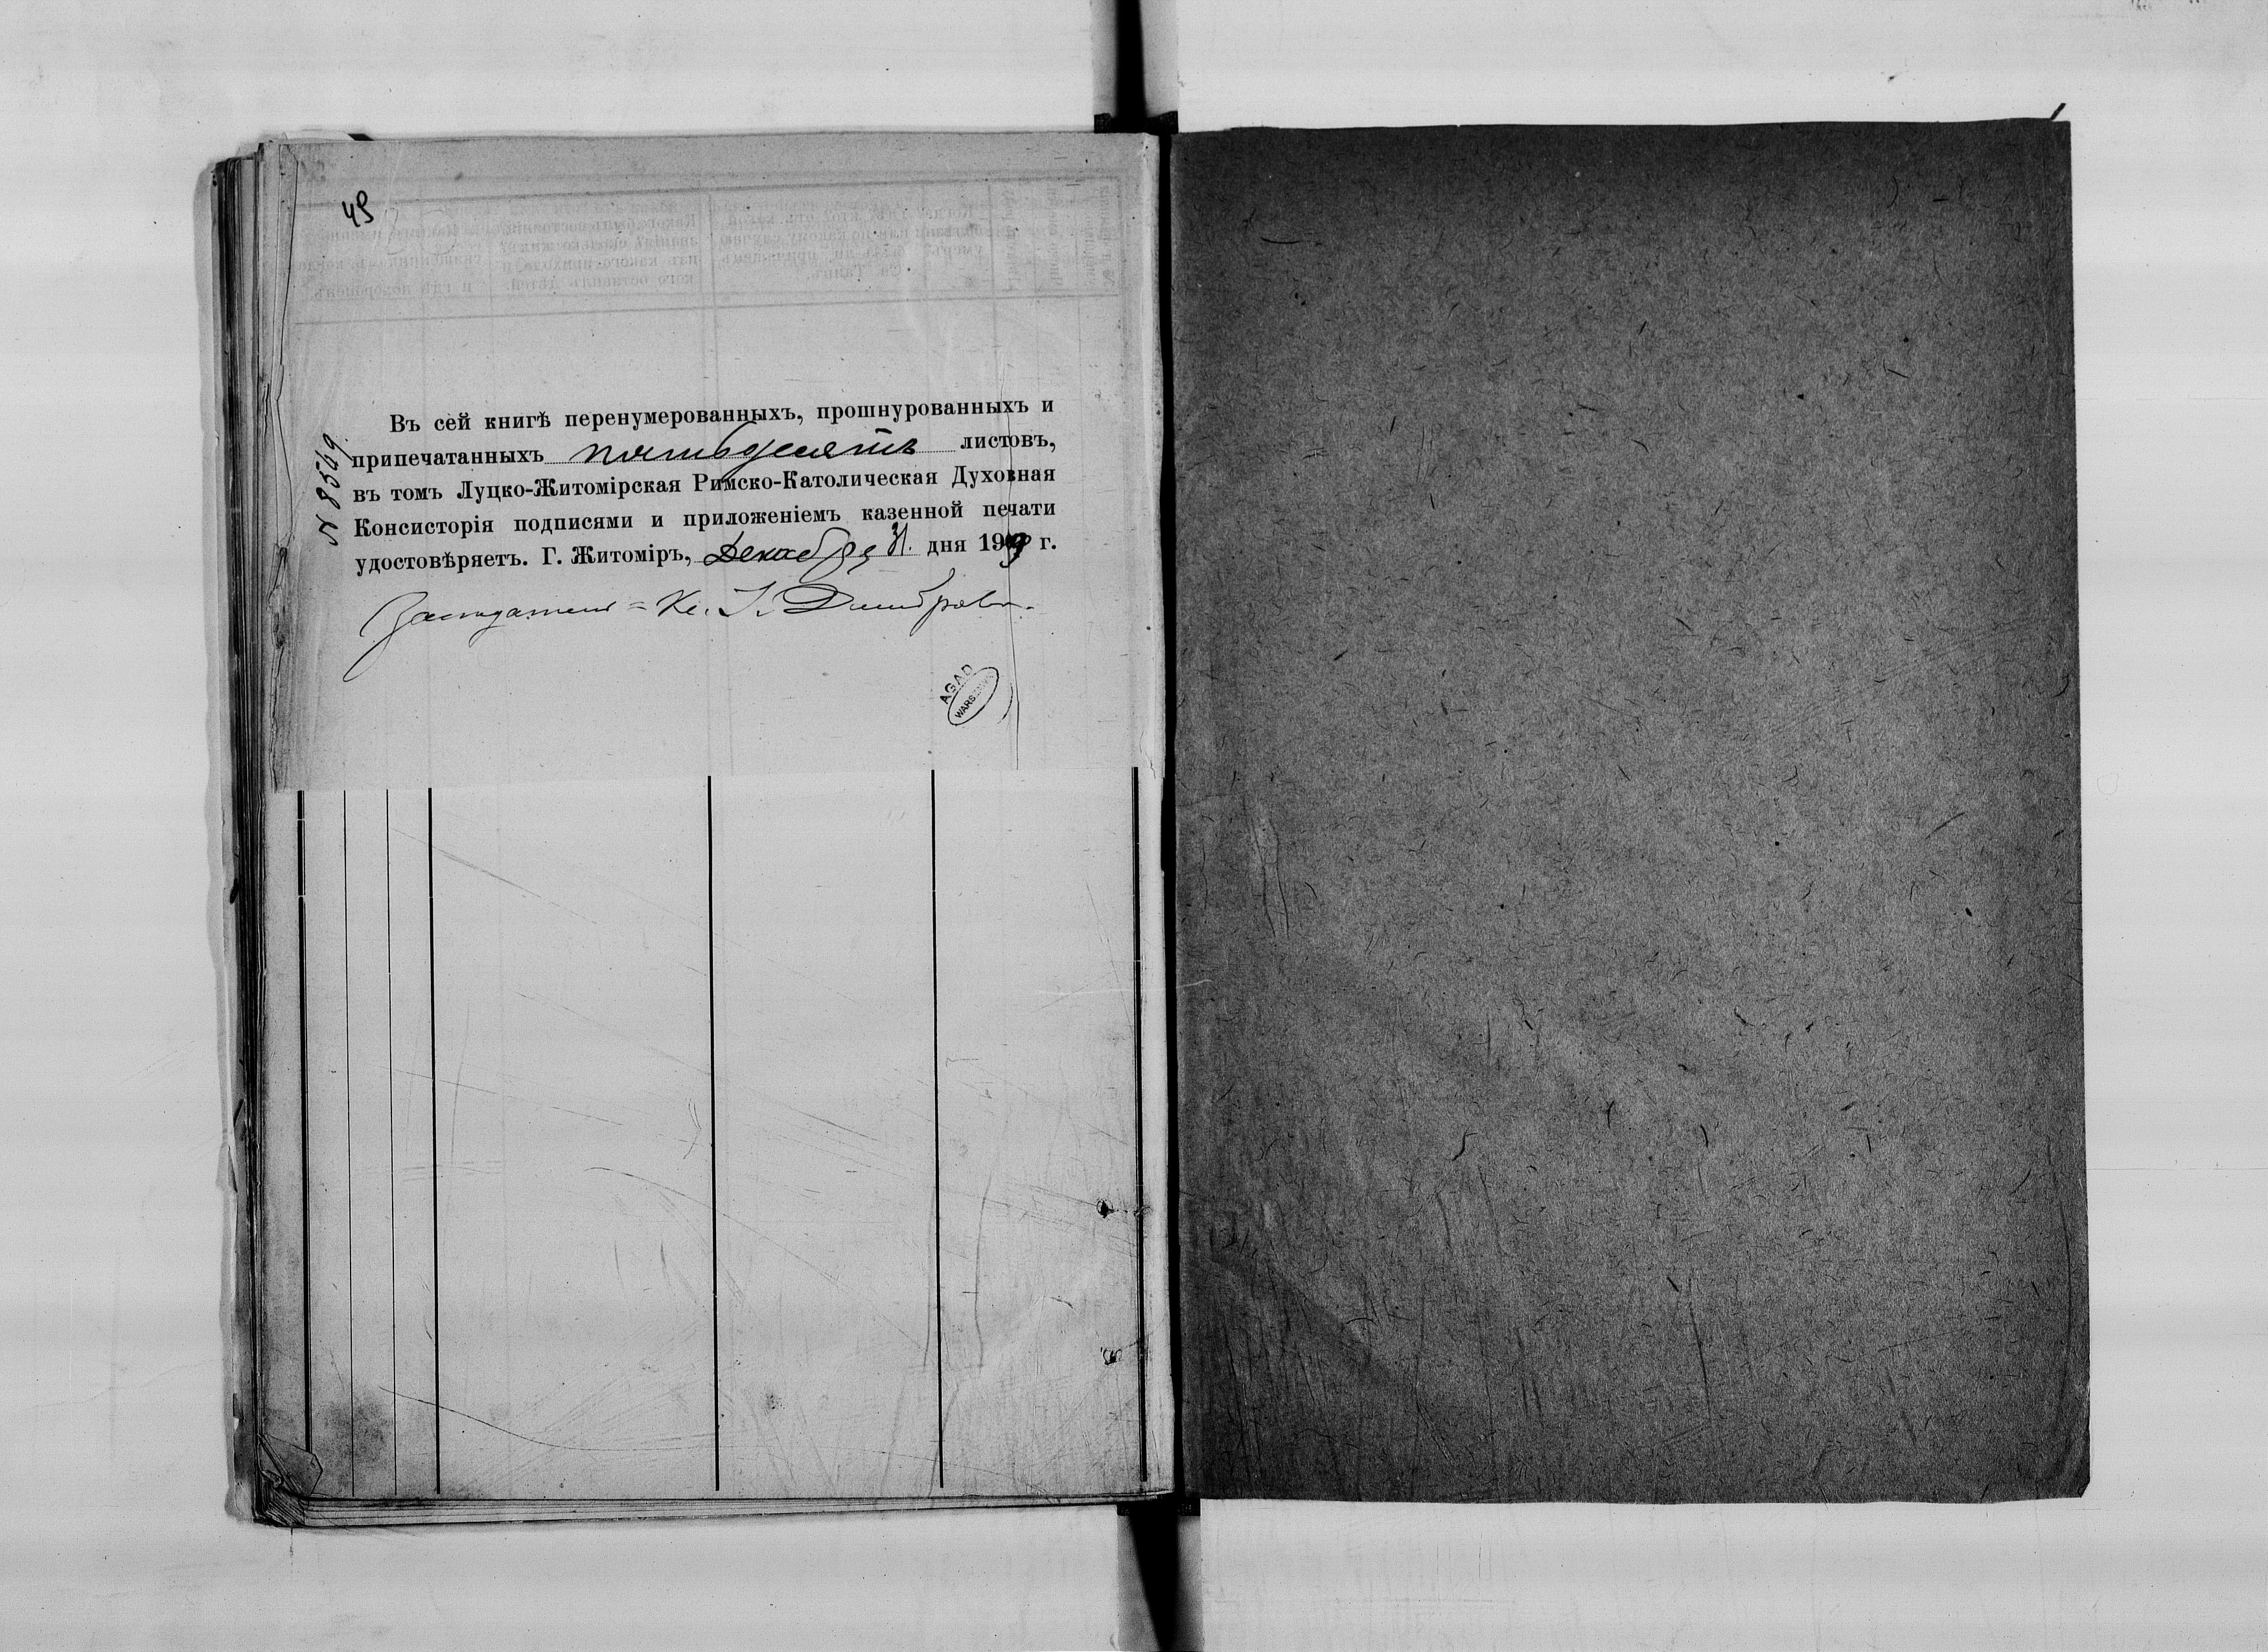 49
Въ сей книгѣ перенумерованныхъ, прошнурованныхъ и
припечатанныхъ пятьдесятъ листовъ,
въ томъ Луцко-Житомірская Римско-Католическая Духовная
Консисторія подписями и приложеніемъ казенной печати
удостовѣряетъ. Г. Житоміръ, Декабря 31. дня 19 9 г.
№ 8569
Засѣдатель = Кс. І.
AGAD
WARSZAWA